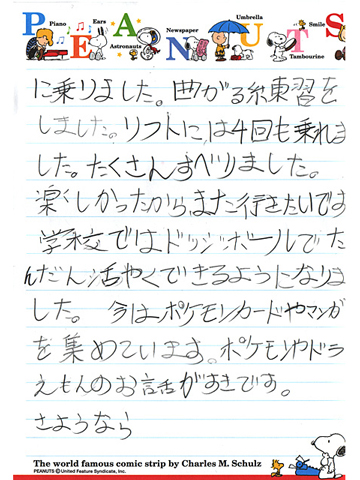 Piano
Ears
Astronauts
Newspaper
Umbrella
Smile
Tambourine
PEANUTS
に乗りました。曲がる練習を
しました。リフトには4回も乗れま
した。たくさんすべりました。
楽しかったから、また行きたいです
学校ではドッジボールでだ
んだん活やくできるようになりま
した。　今はポケモンカードやマンガ
を集めています。ポケモンやドラ
えもんのお話がすきです。
さようなら
The world famous comic strip by Charles M. Schulz
PEANUTS © United Feature Syndicate, Inc.